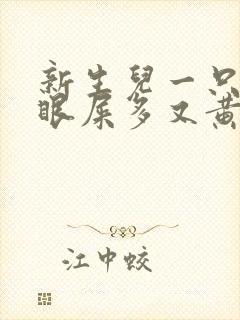 新生兒一只
眼屎多又黃
江中蛟